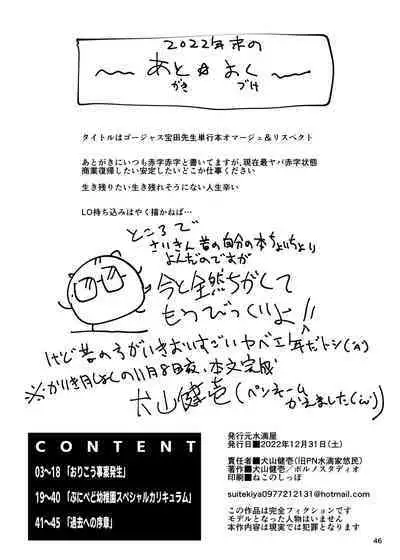 2022年末の
あと☆おく
がき づけ
タイトルはゴージャス宝田先生単行本オマージュ&リスペクト
あとがきにいつも赤字赤字と書いてますが、現在最ヤバ赤字状態
商業復帰したい安定したいどこか仕事ください
生き残りたい生き残れそうにない人生辛い
LO持ち込みはやく描かねば…
ところで
さいきん昔の自分の本ちょいちょい
よんだのですが
今と全然ちがくて
もうびっくりよ!!
けど昔の方がいきおいすごいヤベエ
11月8日夜、本文完成
犬山健壱(ペンネーム
かえました
CONTENT
03~18 「おりこう事業発生」
19~40 「ぷにぺど幼稚園スペシャルカリキュラム」
41~45 「過去への序章」
発行元水滴屋
発行日■2022年12月31日(土)
責任者■犬山健壱(旧PN水滴家悠民)
著作■犬山健壱/ポルノスタディオ
印刷■ねこのしっぽ
suitekiya0977212131@hotmail.com
この作品は完全フィクションです
モデルとなった人物はいません
本作内容は現実では犯罪となります
46